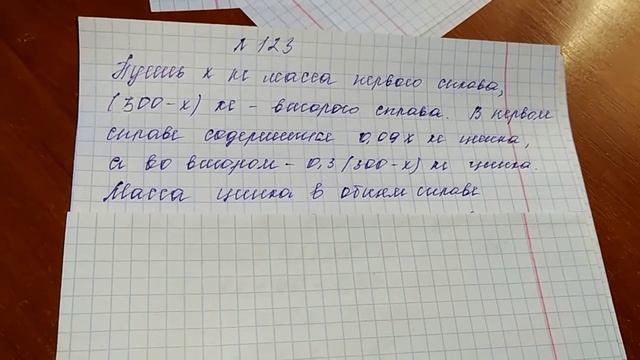 № 123
Пусть х кг масса первого сплава,
(300-х) кг - второго сплава. В первом
сплаве содержится 0,09х кг цинка,
а во втором - 0,3(300-х) кг цинка.
Масса цинка в общем сплаве